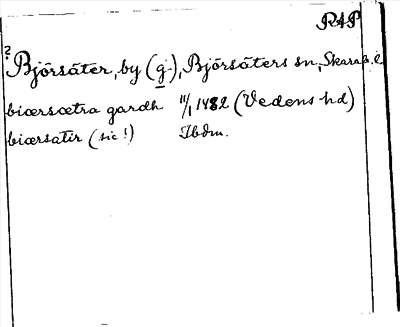 RAP
? Björsäter, by (g.), Björsäters sn, Skarab. l.
biærsætra gardh 11/1 1482 (Vedens hd)
biærsatir (sic!) Ibdm.